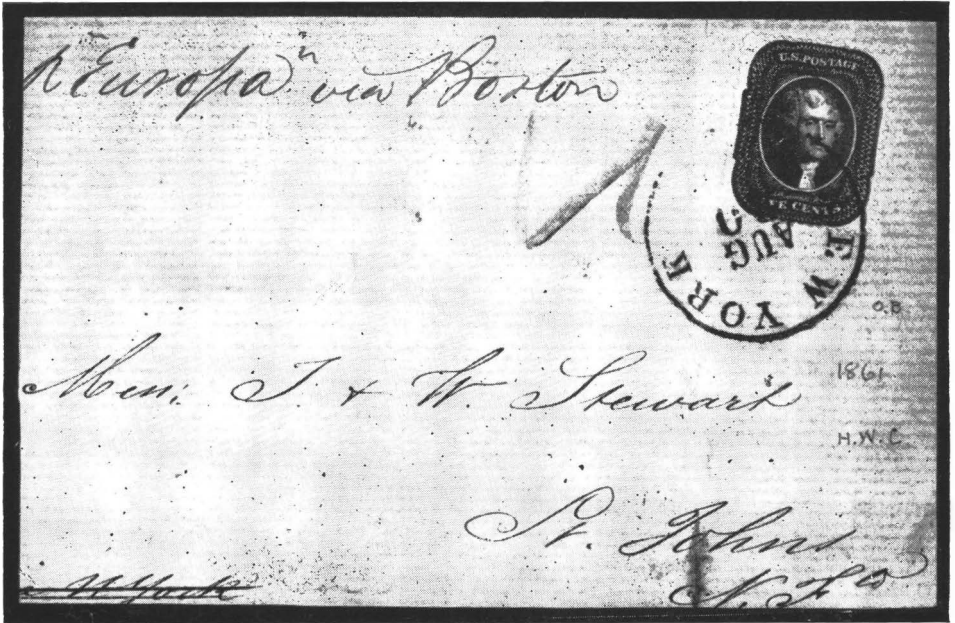 p "Europa" via Boston
U.S. POSTAGE
VE CENTS
EW YORK
AUG
O.B
1861
Mess: J. & W. Stewart
H.W.C
St. Johns
N.F
N York